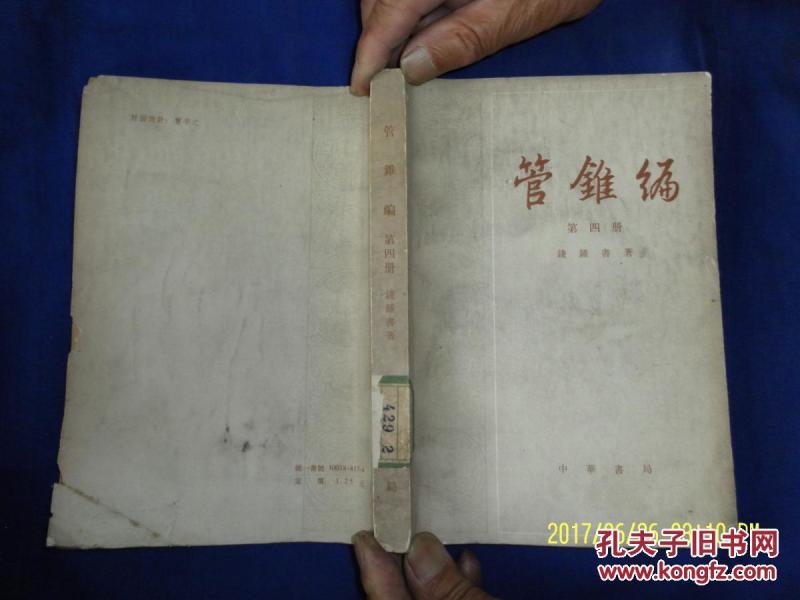 管錐編
第四册
錢鍾書著
中華書局
管錐編 第四册 錢鍾書著
局
429 2
封面設計：曹辛之
統一書號 10018·415-4
定價 1.25 元
孔夫子旧书网
www.kongfz.com